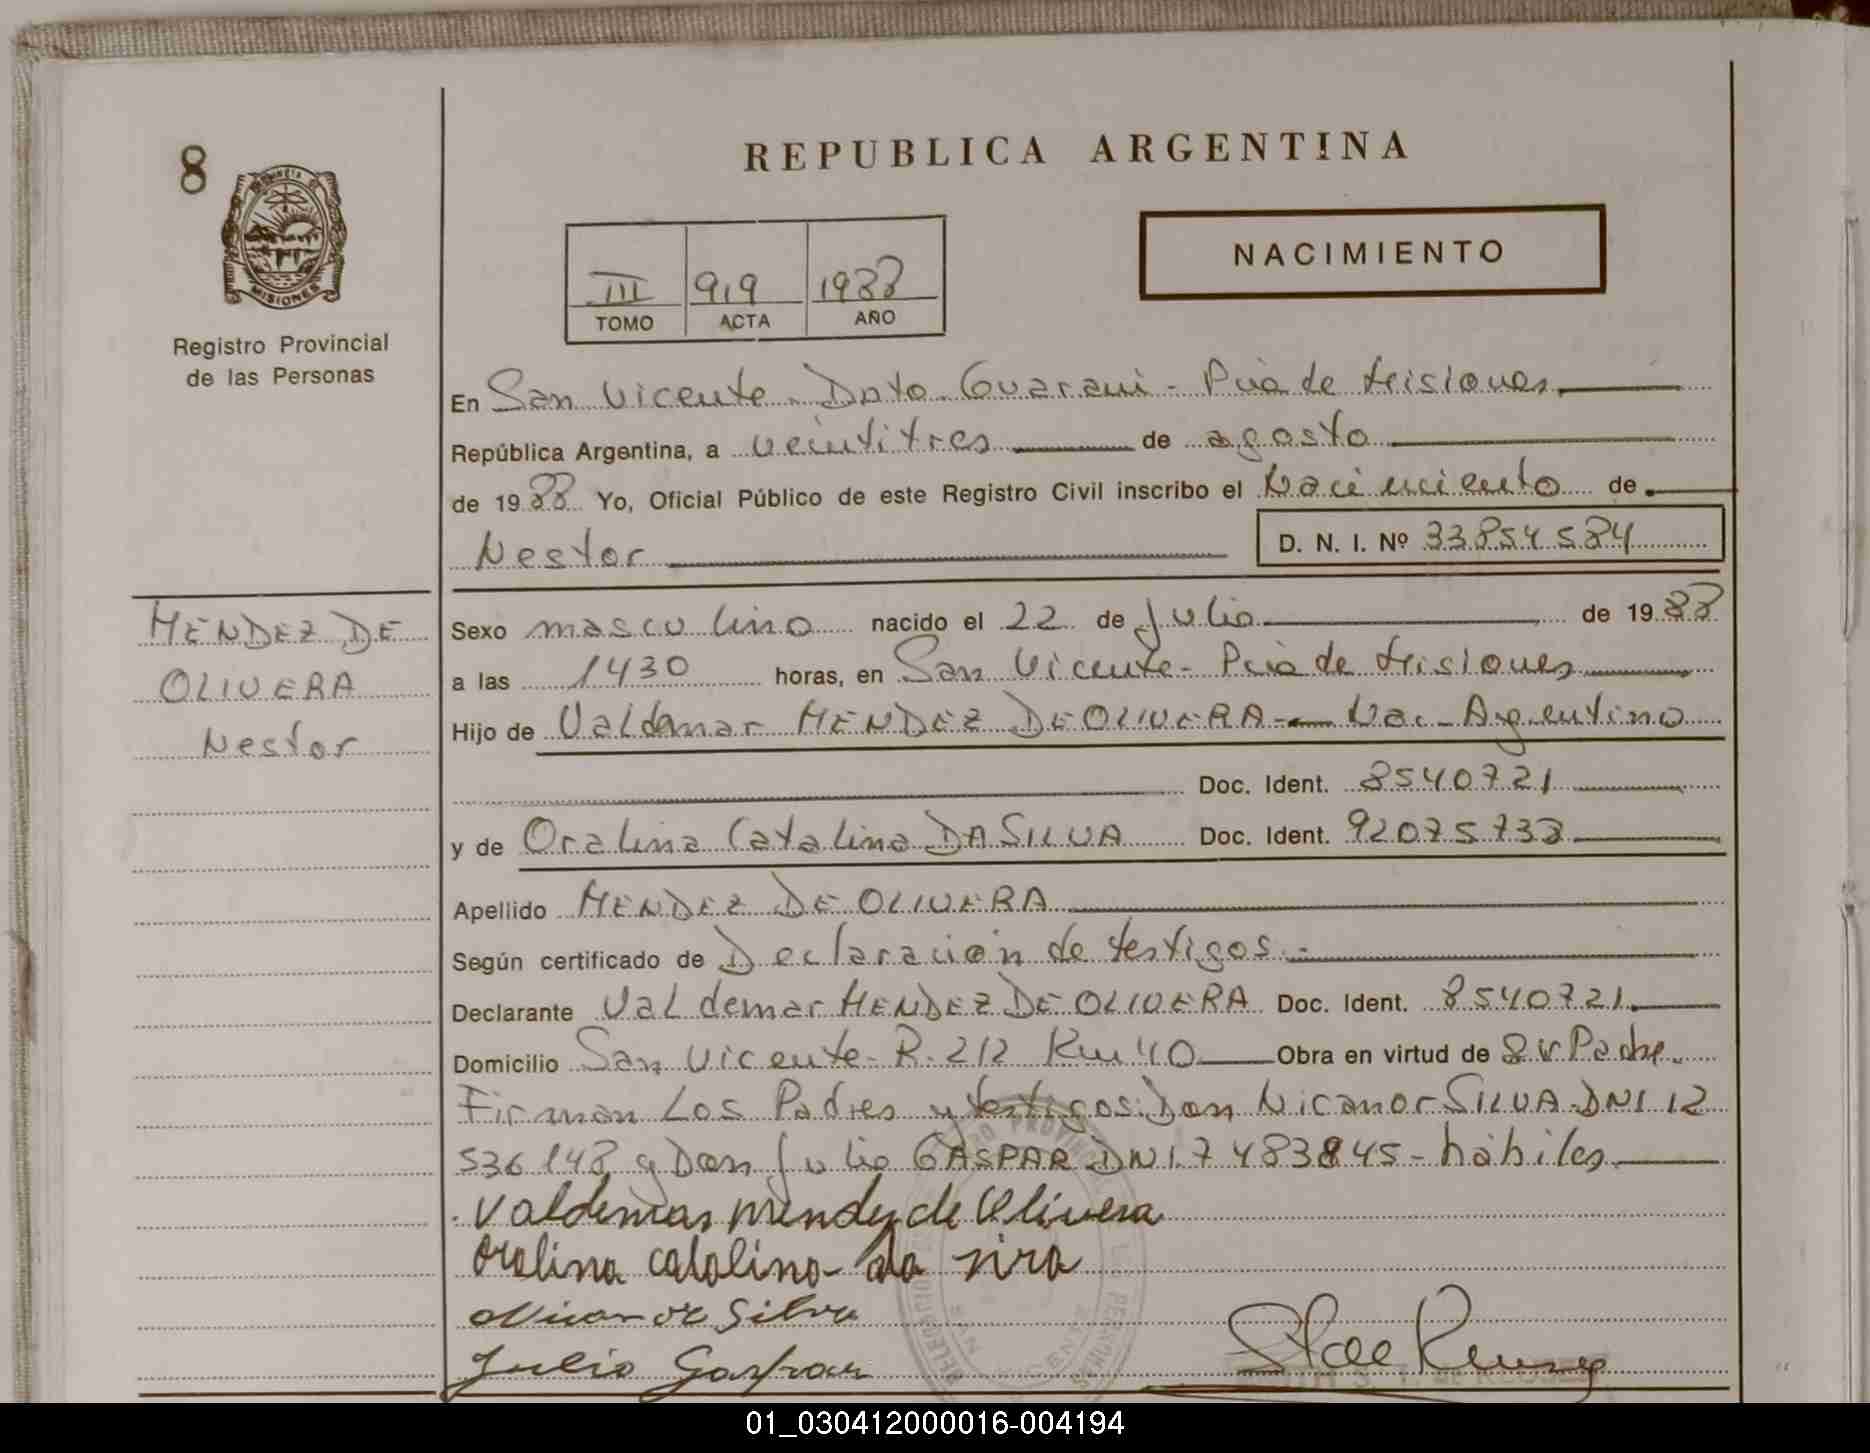 8
REPUBLICA ARGENTINA
PROVINCIA D MISIONES
NACIMIENTO
III 919 1988
TOMO ACTA AÑO
Registro Provincial
de las Personas
En San Vicente - Dpto. Guarani - Pcia de Misiones
República Argentina, a veintitres de agosto
de 1988 Yo, Oficial Público de este Registro Civil inscribo el Nacimiento de
Nestor D. N. I. Nº 33854584
MENDEZ DE
OLIVERA
Nestor
Sexo masculino nacido el 22 de Julio de 1988
a las 1430 horas, en San Vicente - Pcia de Misiones
Hijo de Valdemar MENDEZ DE OLIVERA - Nac - Argentino
Doc. Ident. 8540721
y de Oralina Catalina DA SILVA Doc. Ident. 92075738
Apellido MENDEZ DE OLIVERA
Según certificado de Declaración de testigos.-
Declarante Valdemar MENDEZ DE OLIVERA Doc. Ident. 8540721
Domicilio San Vicente - R. 212 Km 40 Obra en virtud de Padre.
Firman Los Padres y testigos: Don Nicanor SILVA DNI 12
536148 y Don Julio GASPAR DNI. 7483845 - hábiles
Valdemar Mendez de Olivera
oralina catalina da sira
Nicanor Silva
Julio Gaspar
01_030412000016-004194